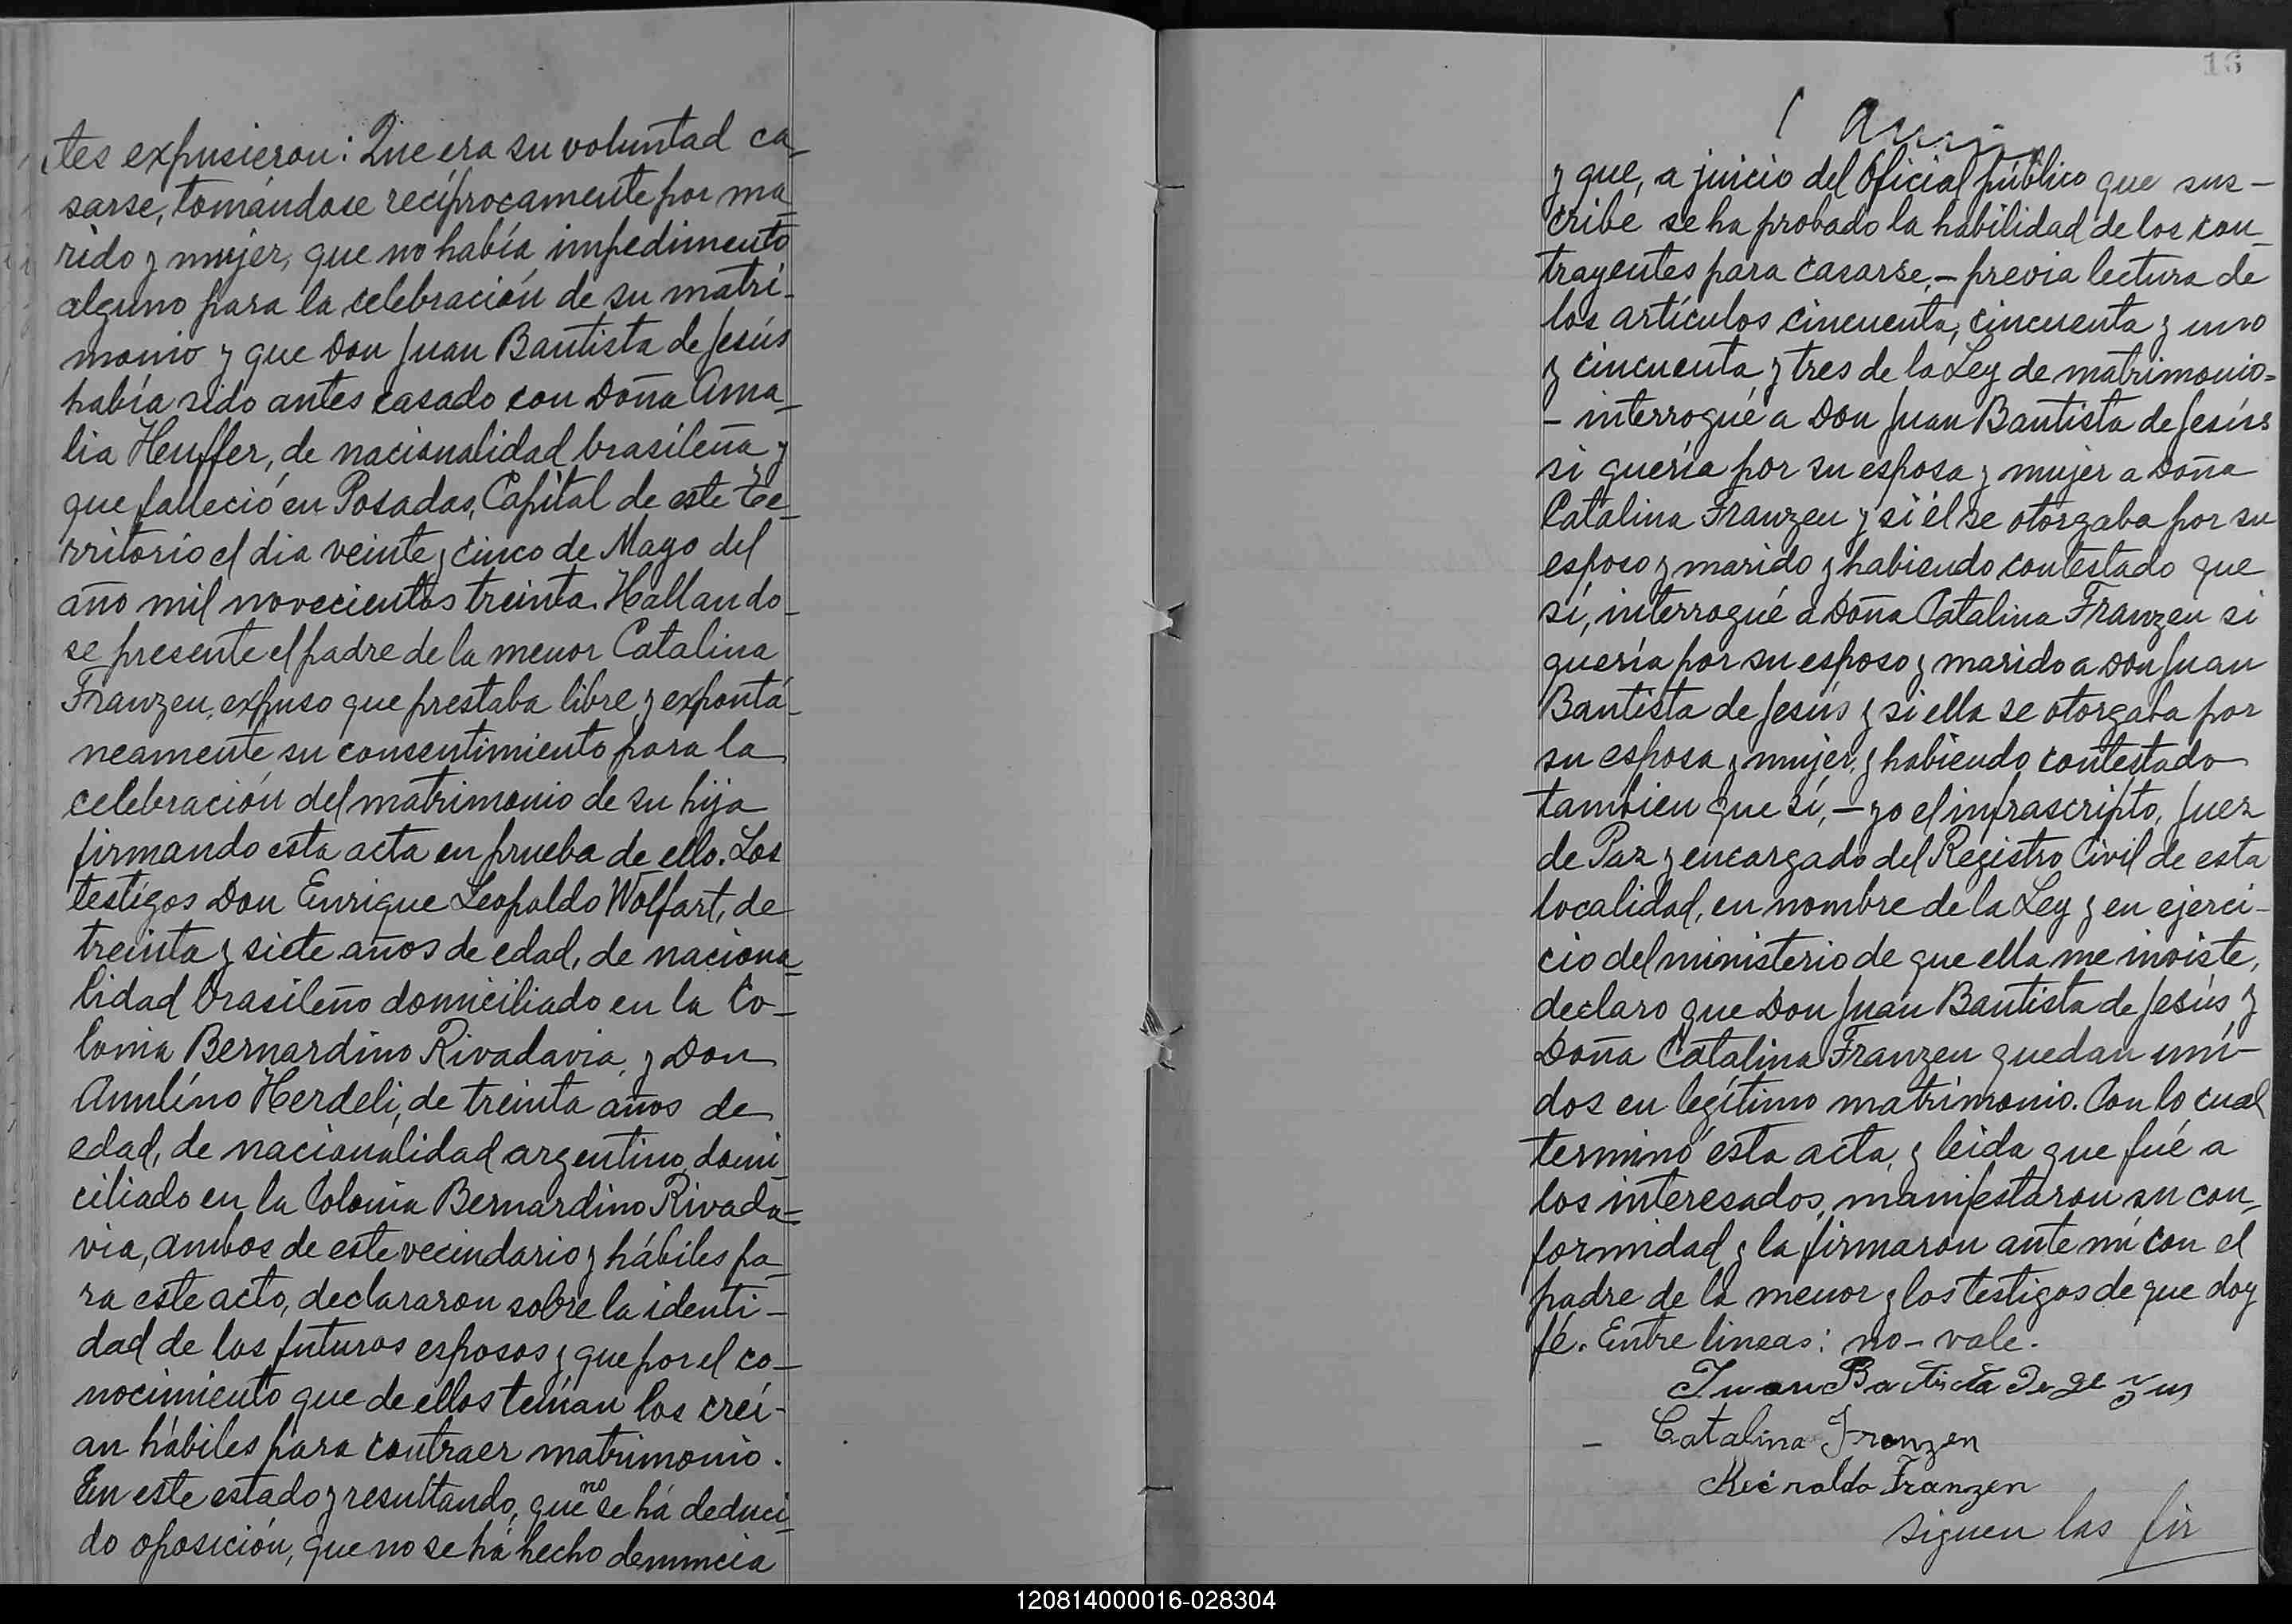 tes expusieron: Que era su voluntad ca-
sarse, tomándose recíprocamente por ma-
rido y mujer, que no había impedimento
alguno para la celebración de su matri-
monio y que Don Juan Bautista de Jesús
había sido antes casado con Doña Ama-
lia Heuffer, de nacionalidad brasileña y
que falleció en Posadas, Capital de este Te-
rritorio el dia veinte y cinco de Mayo del
año mil novecientos treinta. Hallando-
se presente el padre de la menor Catalina
Franzen, expuso que prestaba libre y expontá-
neamente su consentimiento para la
celebración del matrimonio de su hija
firmando esta acta en prueba de ello. Los
testigos Don Enrique Leopoldo Wolfart, de
treinta y siete años de edad, de naciona-
lidad brasileño domiciliado en la Co-
lonia Bernardino Rivadavia, y Don
Herdeli, de treinta años de
edad, de nacionalidad argentino, domi-
ciliado en la Colonia Bernardino Rivada-
via, ambos de este vecindario y hábiles pa-
ra este acto, declararon sobre la identi-
dad de los futuros esposos y que por el co-
nocimiento que de ellos tenían los creí-
an hábiles para contraer matrimonio.
En este estado y resultando, que no se há deduci-
do oposición, que no se há hecho denuncia
16
y que, a juicio del Oficial público que sus-
cribe se ha probado la habilidad de los con-
trayentes para casarse,- previa lectura de
los artículos cincuenta, cincuenta y uno
y cincuenta y tres de la Ley de matrimonio-
- interrogué a Don Juan Bautista de Jesús
si quería por su esposa y mujer a Doña
Catalina Franzen y si él se otorgaba por su
esposo y marido y habiendo contestado que
sí, interrogué a Doña Catalina Franzen si
quería por su esposo y marido a Don Juan
Bautista de Jesús y si ella se otorgaba por
su esposa y mujer, y habiendo contestado
tambien que sí,- yo el infrascripto, Juez
de Paz y encargado del Registro Civil de esta
localidad, en nombre de la Ley y en ejerci-
cio del ministerio de que ella me inviste,
declaro que Don Juan Bautista de Jesús y
Doña Catalina Franzen quedan uni-
dos en legítimo matrimonio. Con lo cual
terminó esta acta, y leida que fué a
los interesados, manifestaron su con-
formidad y la firmaron ante mí con el
padre de la menor y los testigos de que doy
fé. Entre lineas: no- vale.
Juan
Catalina Franzen
Reinoldo Franzen
siguen las fir
120814000016-028304